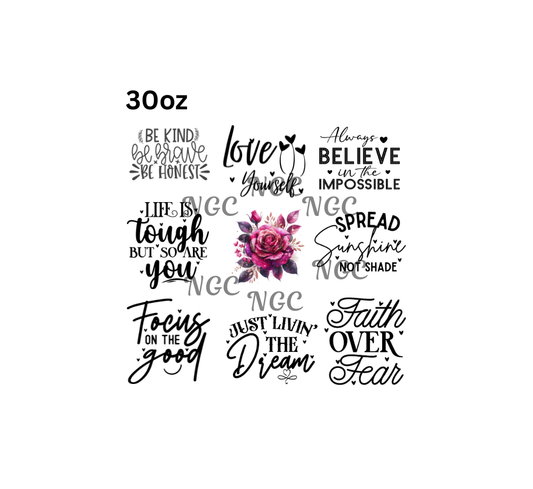 30oz
BE KIND
be brave
BE HONEST
Love
Yourself
Always
BELIEVE
in the
IMPOSSIBLE
LIFE IS
tough
BUT SO ARE
you
SPREAD
Sunshine
NOT SHADE
Focus
ON THE
good
JUST LIVIN'
THE
Dream
Faith
OVER
Fear
NGC
NGC
NGC
NGC
NGC
NGC
NGC